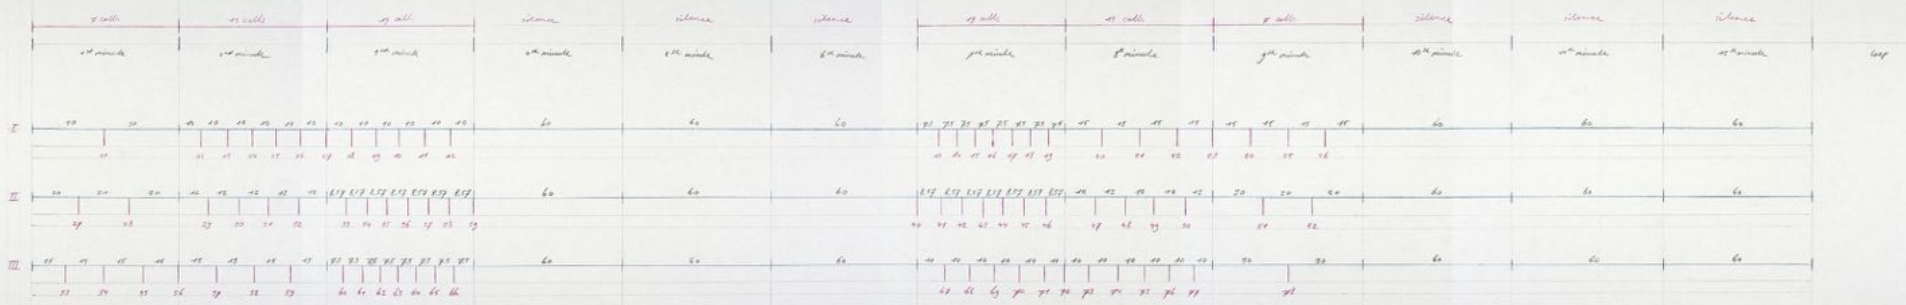 7 calls 13 calls 19 calls silence silence silence 19 calls 13 calls 7 calls silence silence silence
1st minute 2nd minute 3rd minute 4th minute 5th minute 6th minute 7th minute 8th minute 9th minute 10th minute 11th minute 12th minute loop
I 30 30 10 10 10 10 10 10 10 10 10 10 10 10 60 60 60 7.5 7.5 7.5 7.5 7.5 7.5 7.5 7.5 15 15 15 15 15 15 15 15 60 60 60
II 20 20 20 12 12 12 12 12 8.57 8.57 8.57 8.57 8.57 8.57 8.57 60 60 60 8.57 8.57 8.57 8.57 8.57 8.57 8.57 12 12 12 12 12 20 20 20 60 60 60
27 28 29 30 31 32 33 34 35 36 37 38 39 40 41 42 43 44 45 46 47 48 49 50 51 52
III 15 15 15 15 15 15 15 15 7.5 7.5 7.5 7.5 7.5 7.5 7.5 7.5 60 60 60 10 10 10 10 10 10 10 10 10 10 10 10 30 30 60 60 60
53 54 55 56 57 58 59 60 61 62 63 64 65 66 67 68 69 70 71 72 73 74 75 76 77 78